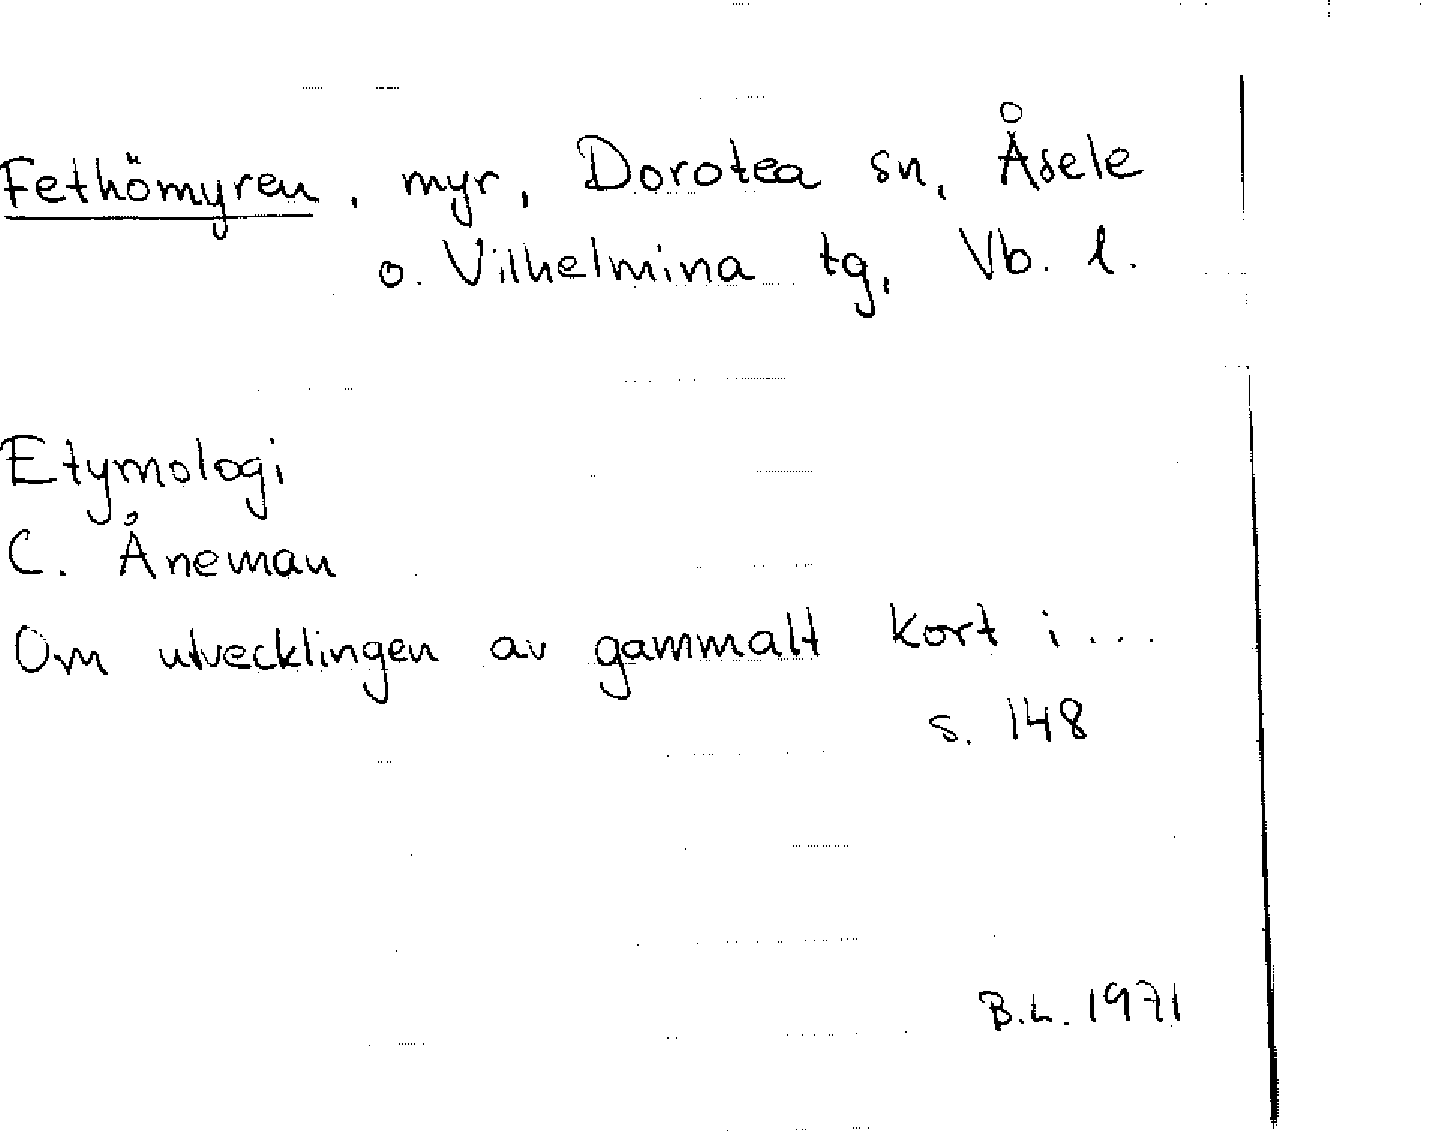 Fethömyren, myr, Dorotea sn, Åsele
o. Vilhelmina tg, Vb. l.
Etymologi
C. Åneman
Om utvecklingen av gammalt kort i...
s. 148
B.L. 1971